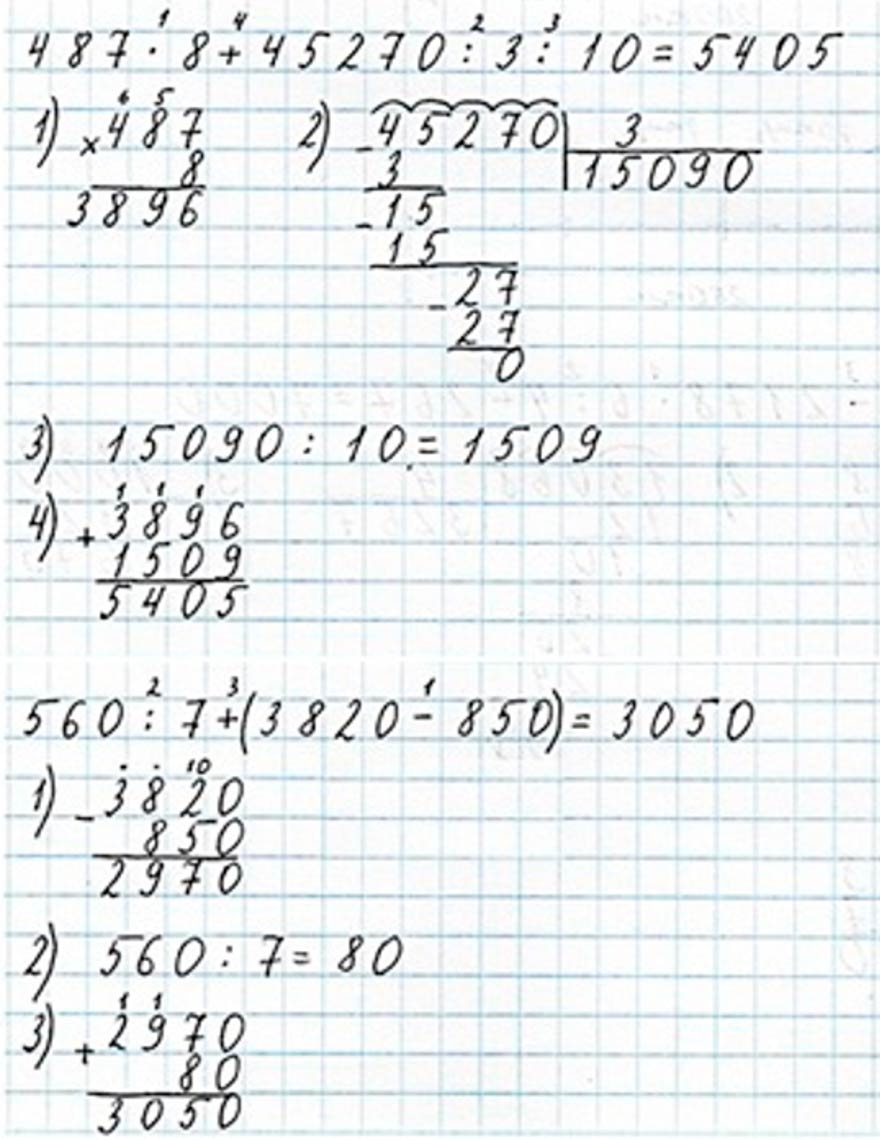 487 · 8 + 45270 : 3 : 10 = 5405
1) × 487
8
3896
2) - 45270 | 3
15090
3
- 15
15
- 27
27
0
3) 15090 : 10 = 1509
4) + 3896
1509
5405
560 : 7 + (3820 - 850) = 3050
1) - 3820
850
2970
2) 560 : 7 = 80
3) + 2970
80
3050